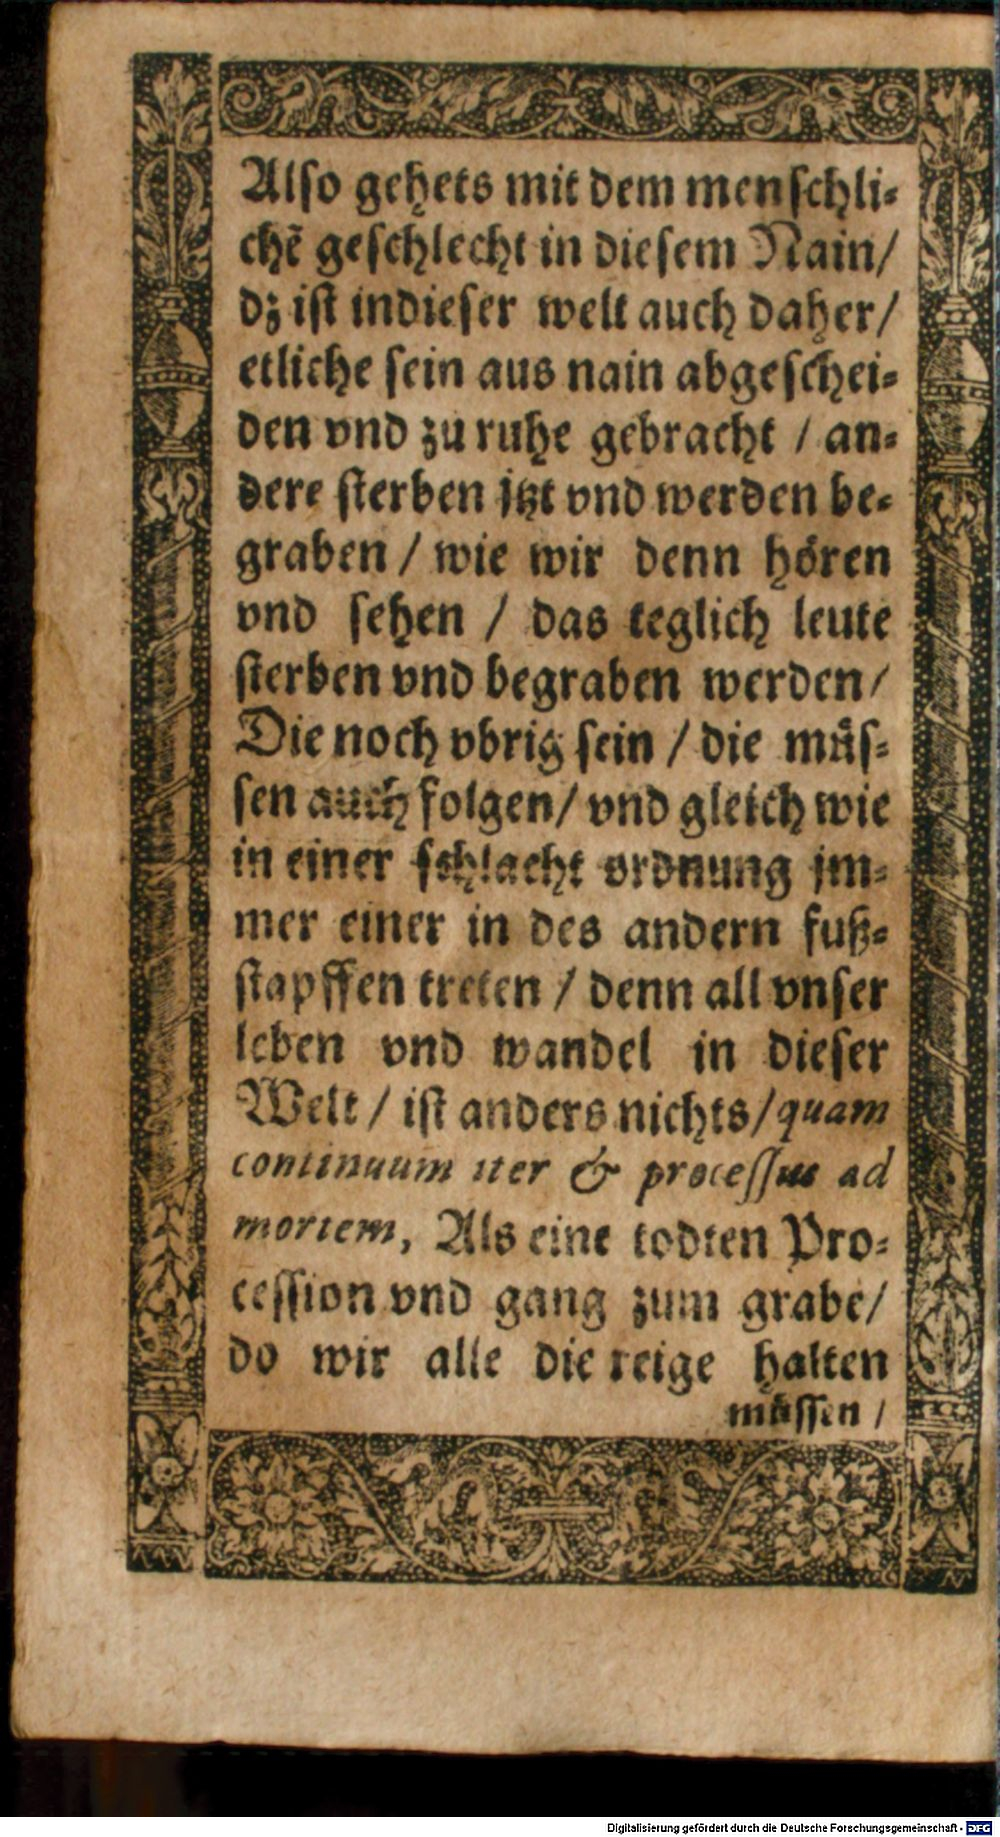 Also gehets mit dem menschli-
chẽ geschlecht in diesem Nain/
dz ist indieser welt auch daher/
etliche sein aus nain abgeschei-
den vnd zu ruhe gebracht / an-
dere sterben jtzt vnd werden be-
graben / wie wir denn hören
vnd sehen / das teglich leute
sterben vnd begraben werden/
Die noch vbrig sein / die müs-
sen auch folgen/ vnd gleich wie
in einer schlacht ordnung jm-
mer einer in des andern fuß-
stapffen treten / denn all vnser
leben vnd wandel in dieser
Welt / ist anders nichts/ quam
continuum iter & processus ad
mortem, Als eine todten Pro-
cession vnd gang zum grabe/
do wir alle die reige halten
müssen /
Digitalisierung gefördert durch die Deutsche Forschungsgemeinschaft - DFG